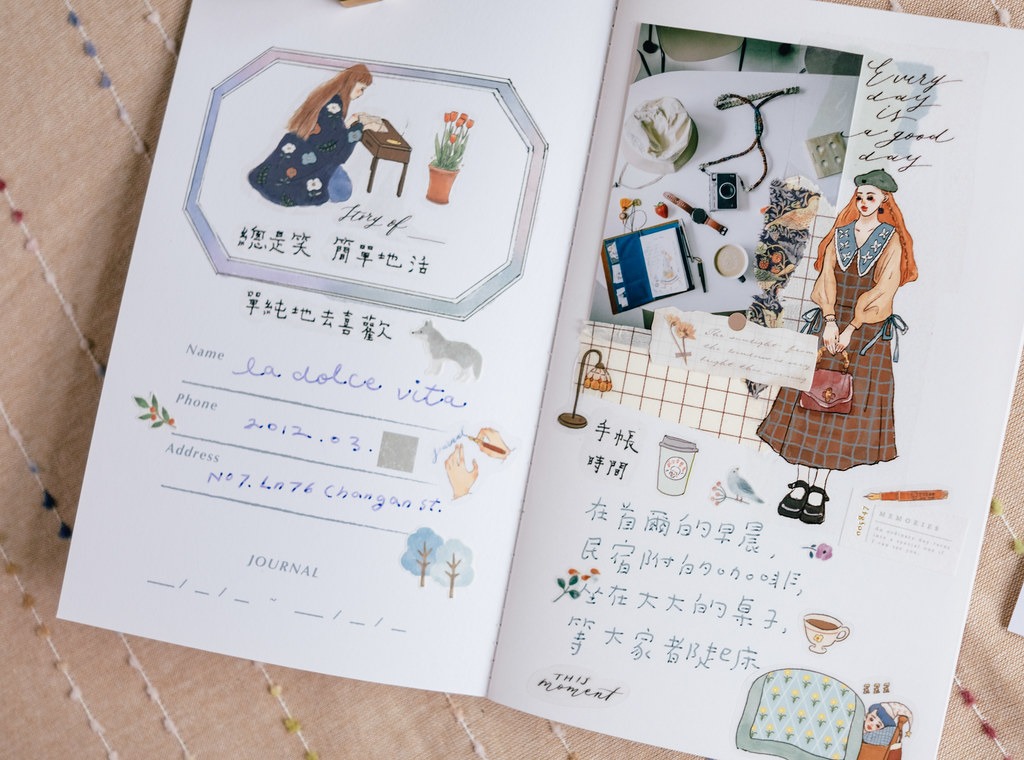 Story of
總是笑 簡單地活
單純地去喜歡
Name
la dolce vita
Phone
2012.03.
Address
No7. Ln76 Changan st.
JOURNAL
__/__/__ ~ __/__/__
Every
day
is
a good
day
手帳
時間
MEMORIES
在首爾的早晨,
民宿附的咖啡,
坐在大大的桌子,
等大家都起床
THIS
moment